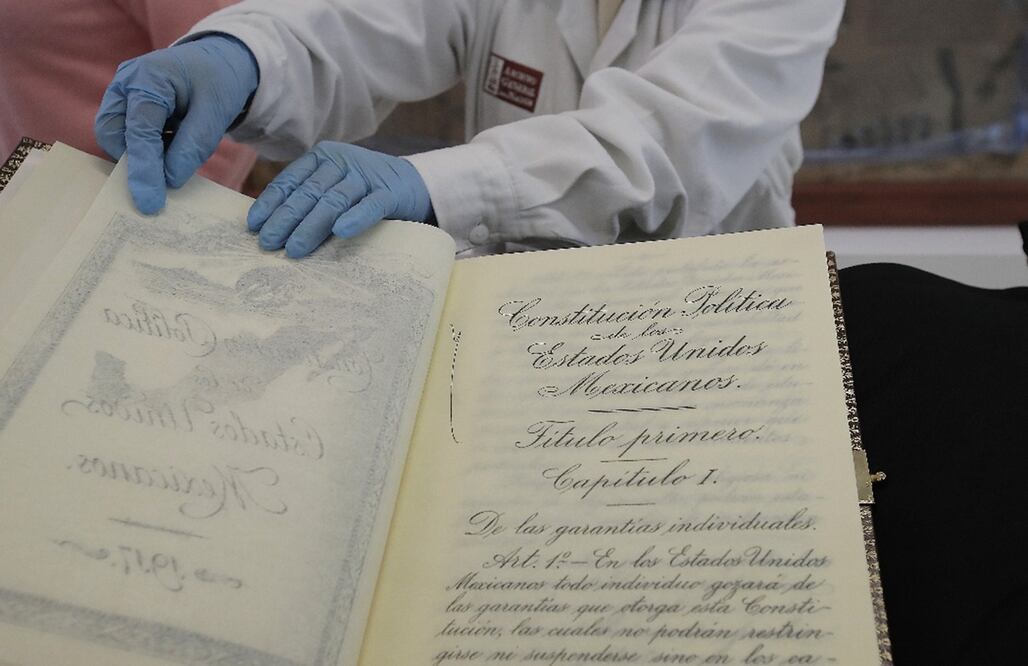 ARCHIVO
GENERAL
Constitución Política
de los
Estados Unidos
Mexicanos.
Título primero.
Capítulo I.
De las garantías individuales.
Art. 1º.— En los Estados Unidos
Mexicanos todo individuo gozará de
las garantías que otorga esta Consti-
tución, las cuales no podrán restrin-
girse ni suspenderse sino en los ca-
Política
de los
Estados Unidos
Mexicanos.
1917